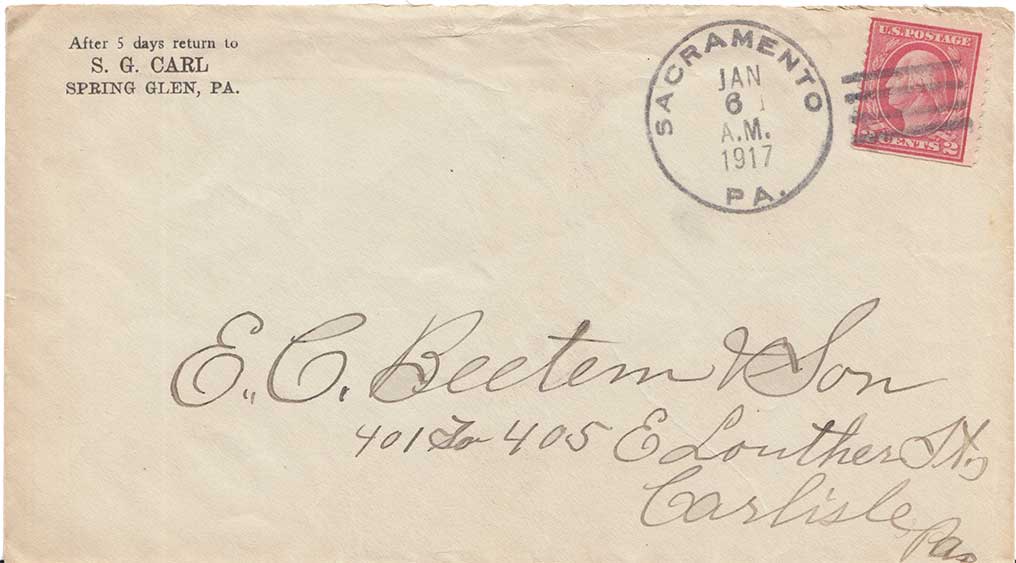 After 5 days return to
S. G. CARL
SPRING GLEN, PA.
SACRAMENTO
JAN
6
A.M.
1917
PA.
U.S. POSTAGE
2 CENTS 2
E. C. Beetem & Son
401 to 405 E Louther St,
Carlisle
Pa